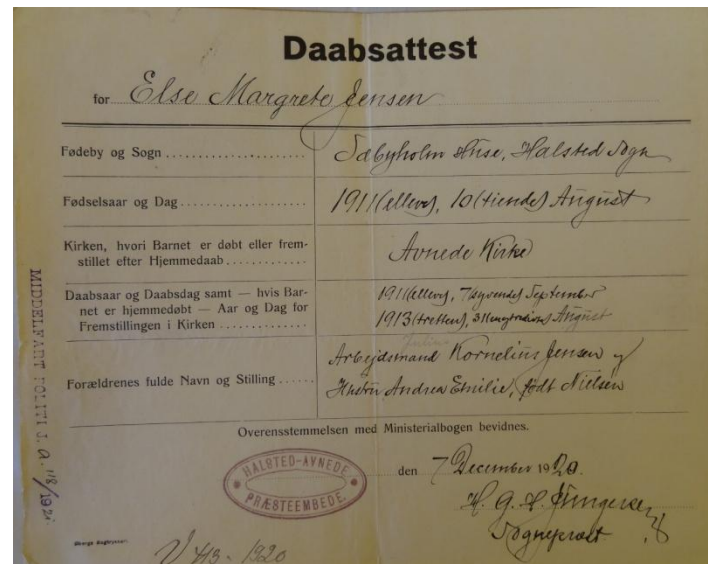 Daabsattest
for Else Margrete Jensen
Fødeby og Sogn Sæbyholm Huse, Halsted Sogn
Fødselsaar og Dag 1911 (elleve), 10 (tiende) August
Kirken, hvori Barnet er døbt eller frem-
stillet efter Hjemmedaab Avnede Kirke
Daabsaar og Daabsdag samt — hvis Bar-
net er hjemmedøbt — Aar og Dag for
Fremstillingen i Kirken
1911 (elleve), 7 (syvende) September
1913 (tretten), 31 August
Julius
Arbejdsmand Kornelius Jensen og
Forældrenes fulde Navn og Stilling
Hustru Andrea Emilie, født Nielsen
Overensstemmelsen med Ministerialbogen bevidnes.
HALSTED-AVNEDE
PRÆSTEEMBEDE.
den 7 December 1920.
H. G. S. Jungersen
Sognepræst.
V 413 - 1920
MIDDELFART POLITI J. a. 118/192